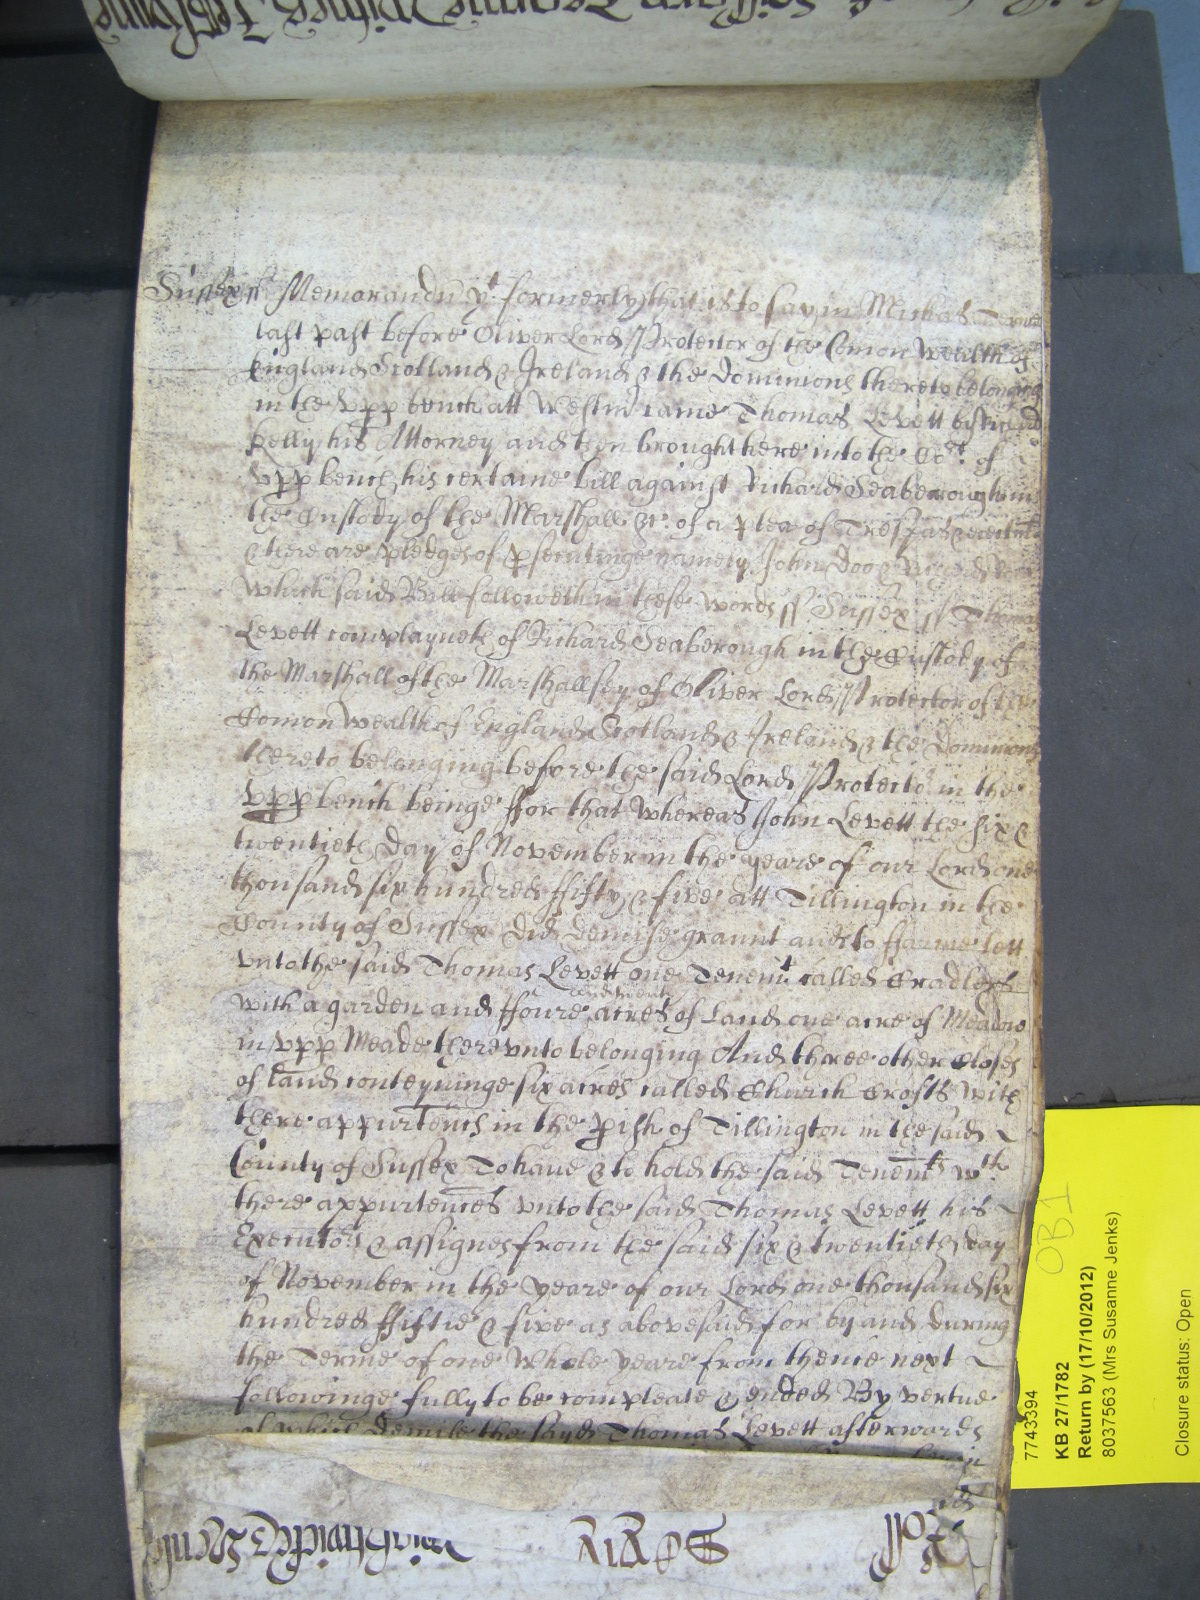 Sussex ss Memorandū yt formerly that is to say in Michās Terme
last past before Oliver Lord Protector of the Comon Wealth of
England Scotland & Ireland & the dominions thereto belonging
in the Vpp bench att Westm̄ came Thomas Levett by Richard
Kelly his Attorney and then brought here into the Cort of
Vpp bench his certaine bill against Richard Seaberough in
the Custody of the Marshall &c of a plea of Trespas & eiectmt
& there are pledges of psecutinge namely John Doo & Richard Roo
Which said Bill followeth in these words ss Sussex ss Thomas
Levett complayneth of Richard Seaberough in the Custody of
the Marshall of the Marshallsey of Oliver Lord Protector of the
Comon Wealth of England Scotland & Ireland & the dominions
thereto belonging before the said Lord Protector in the
Vpp bench beinge ffor that Whereas John Levett the six &
twentieth day of November in the yeare of our Lord one
thousand six hundred ffifty & five att Tillington in the
County of Sussex did demise graunt and to ffarme lett
vnto the said Thomas Levett one Tenemt called Cradlers
with a garden and ffoure and twenty acres of Land one acre of Meadow
in Vpp Meade there vnto belonging And three other Closes
of land conteyninge six acres called Church Crofts with
there appurtencs in the pish of Tillington in the said
County of Sussex To haue & to hold the said Tenemts wth
there appurtences vnto the said Thomas Levett his
Executors & assignes from the said six & twentieth day
of November in the yeare of our Lord one thousand six
hundred ffiftie & five as abovesaid for by and during
the Terme of one Whole yeare from thence next
followinge fully to be compleate & ended By vertue
of which demise the sayd Thomas Levett afterwards
Roll
7743394
KB 27/1782
Return by (17/10/2012)
8037563 (Mrs Susanne Jenks)
Closure status: Open
OB 1